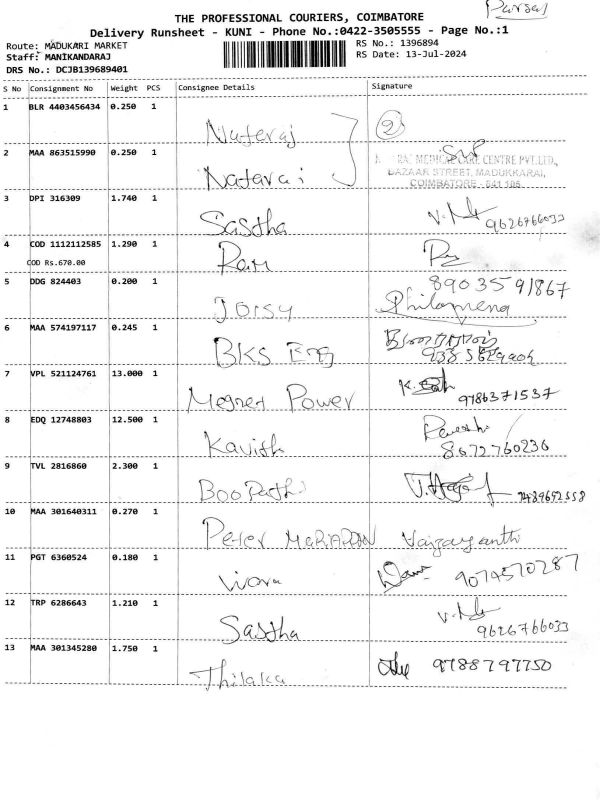 Parsal
THE PROFESSIONAL COURIERS, COIMBATORE
Delivery Runsheet - KUNI - Phone No.:0422-3505555 - Page No.:1
Route: MADUKARI MARKET
RS No.: 1396894
Staff: MANIKANDARAJ
RS Date: 13-Jul-2024
DRS No.: DCJB139689401
S No Consignment No Weight PCS Consignee Details Signature
1 BLR 4403456434 0.250 1 Nataraj 2
2 MAA 863515990 0.250 1 Nataraj
MEDICAL CARE CENTRE PVT.LTD.,
BAZAAR STREET, MADUKKARAI,
COIMBATORE - 641 105
3 DPI 316309 1.740 1 Sastha 9626766033
4 COD 1112112585 1.290 1 Ram
COD Rs.670.00
5 DDG 824403 0.200 1 Jorsy 8903591867
Philomena
6 MAA 574197117 0.245 1 BKS Eng
7 VPL 521124761 13.000 1 Megnet Power 9786371537
8 EDQ 12748803 12.500 1 Kavith 8672760236
9 TVL 2816860 2.300 1 Boopathi
10 MAA 301640311 0.270 1 Peter Vaijayanthi
11 PGT 6360524 0.180 1 9074570287
12 TRP 6286643 1.210 1 Sastha 9626766033
13 MAA 301345280 1.750 1 Thilaka 9788797750